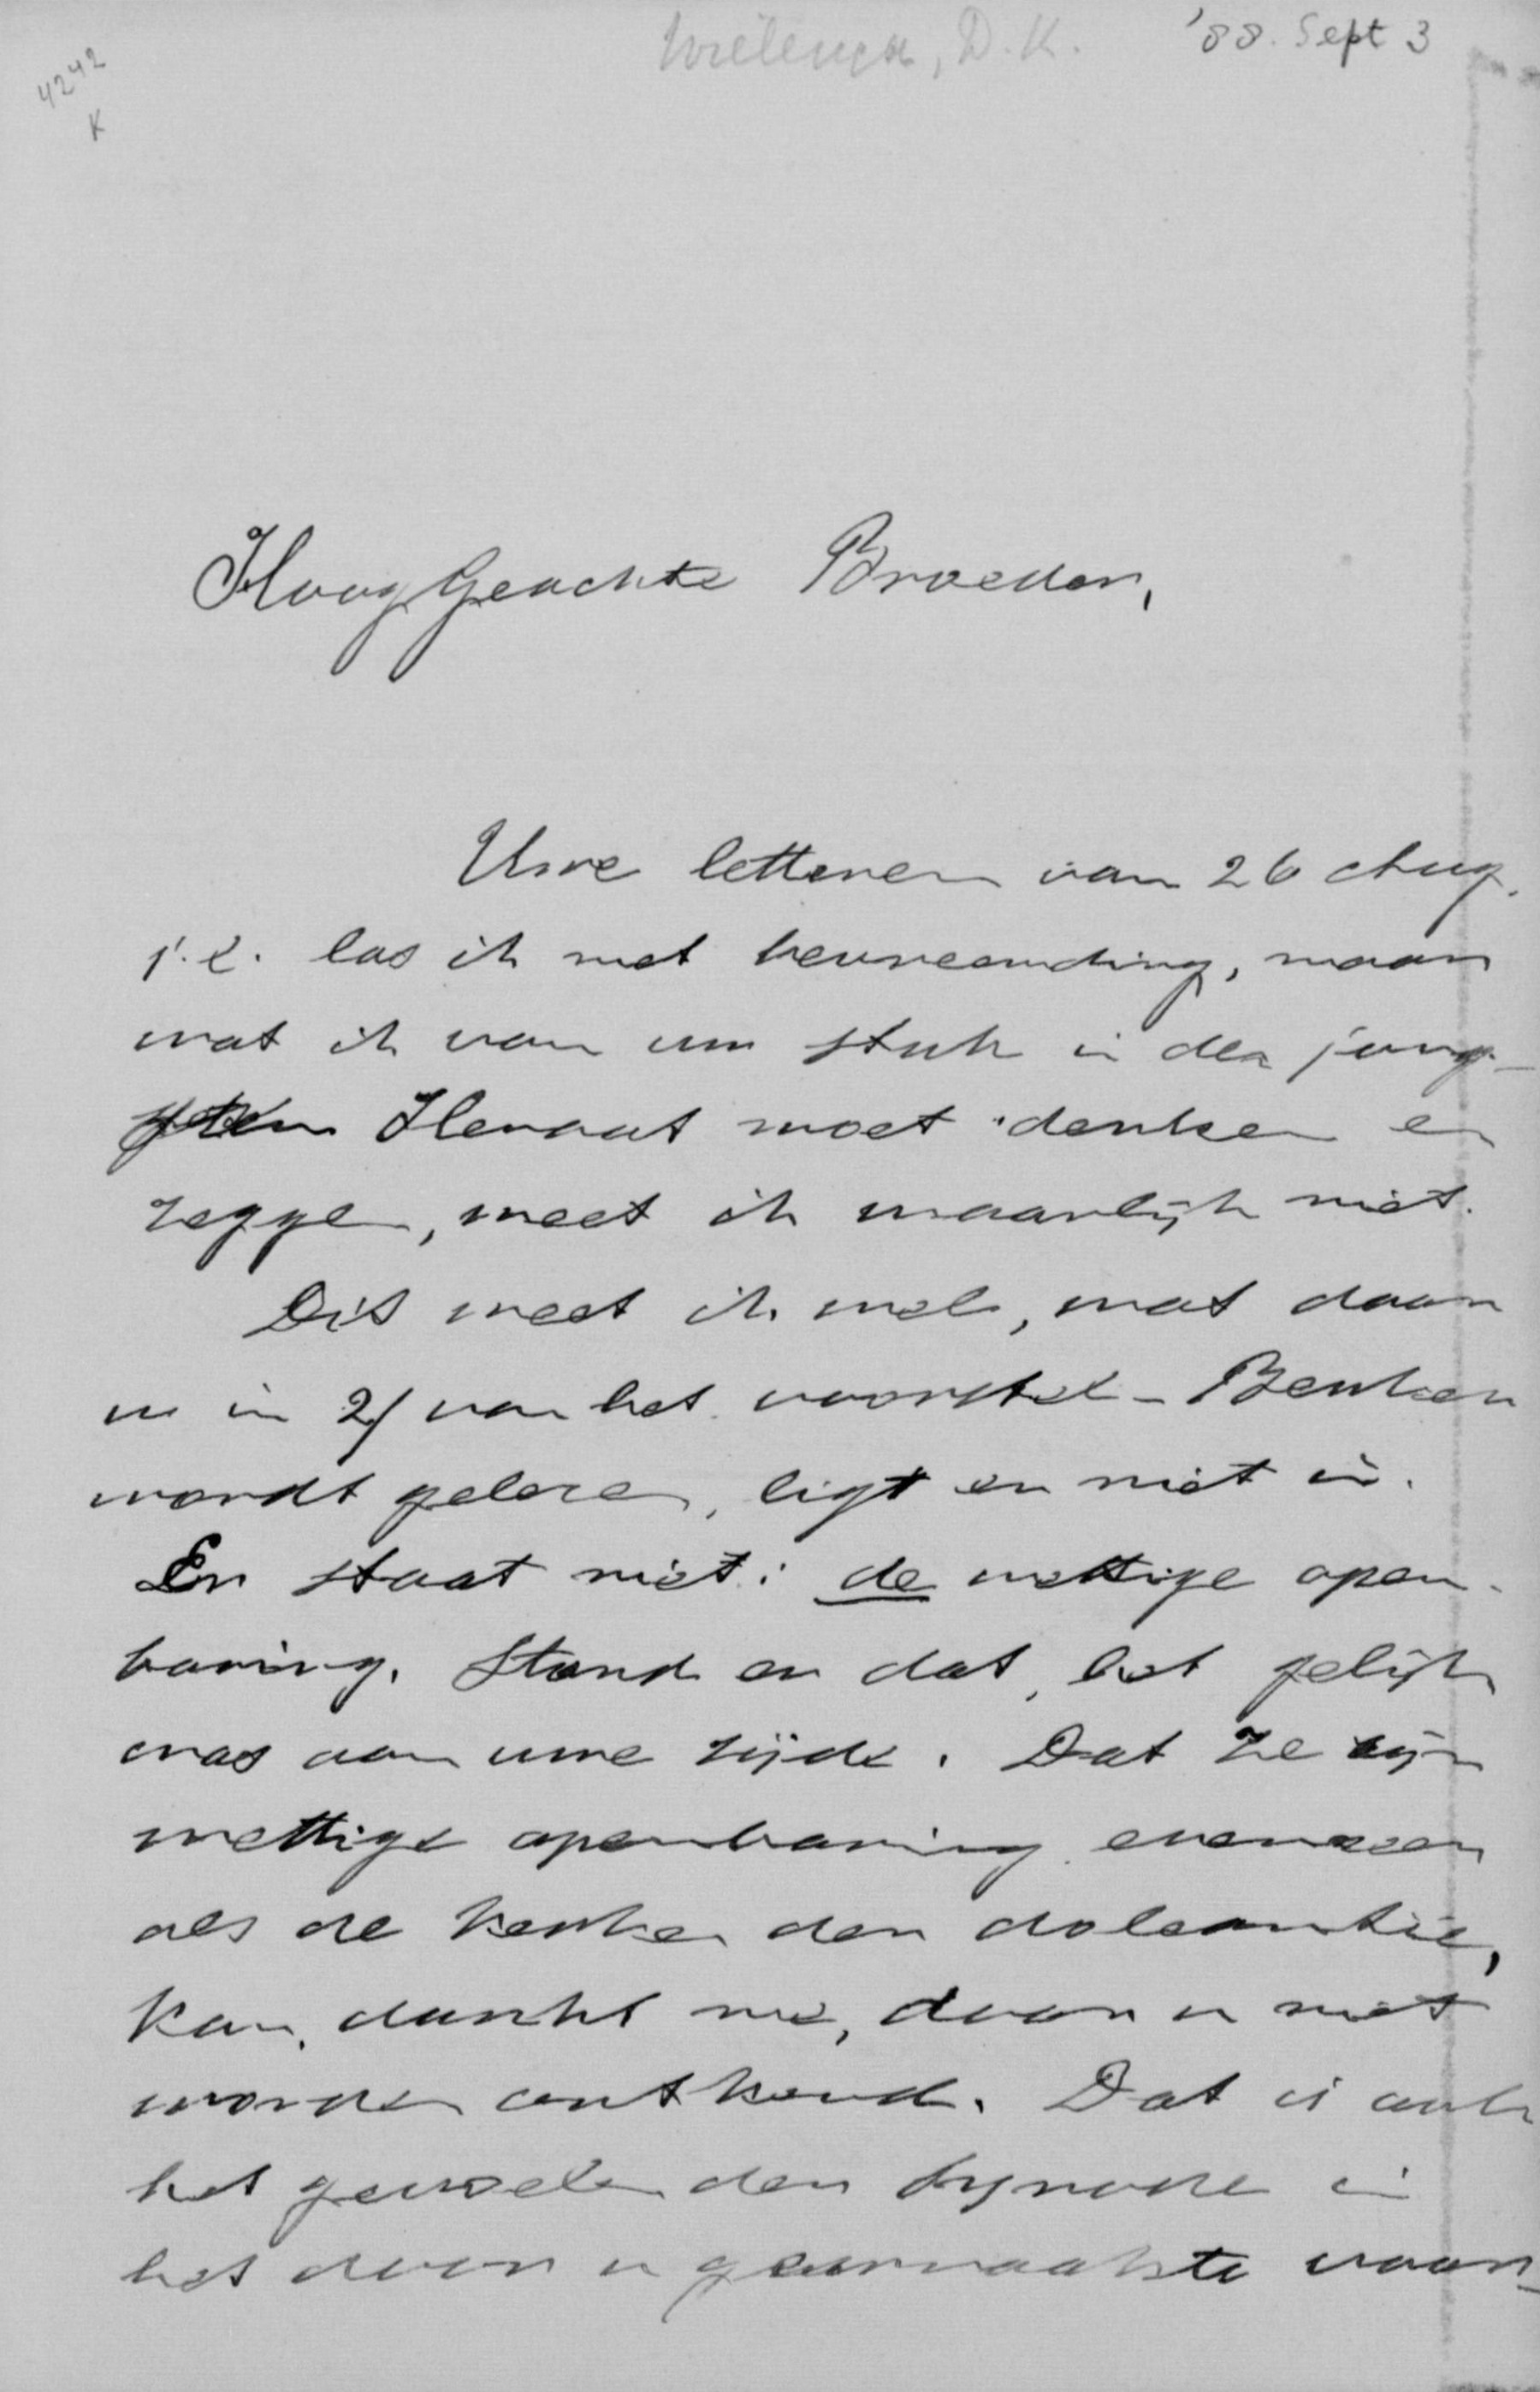 Wielenga, D. K. '88. Sept 3
4242
K
HoogGeachte Broeder,
Uwe letteren van 26 Aug.
j.l. las ik met bevreemding, maar
wat ik van uw stuk in den jong-
sten Heraut moet denken en
zeggen, weet ik waarlijk niet.
Dit weet ik wel, wat door
u in 2/ van het voorstel-Beuker
wordt gelezen, ligt er niet in.
Er staat niet: de wettige open-
baring. Stond er dat, het gelijk
was aan uwe zijde. Dat ze zijn
wettige openbaring evenzeer
als de kerken der doleantie,
kan, dunkt me, door u niet
worden ontkend. Dat is ook
het gevoelen der Synode in
het door u gewraakte voor-